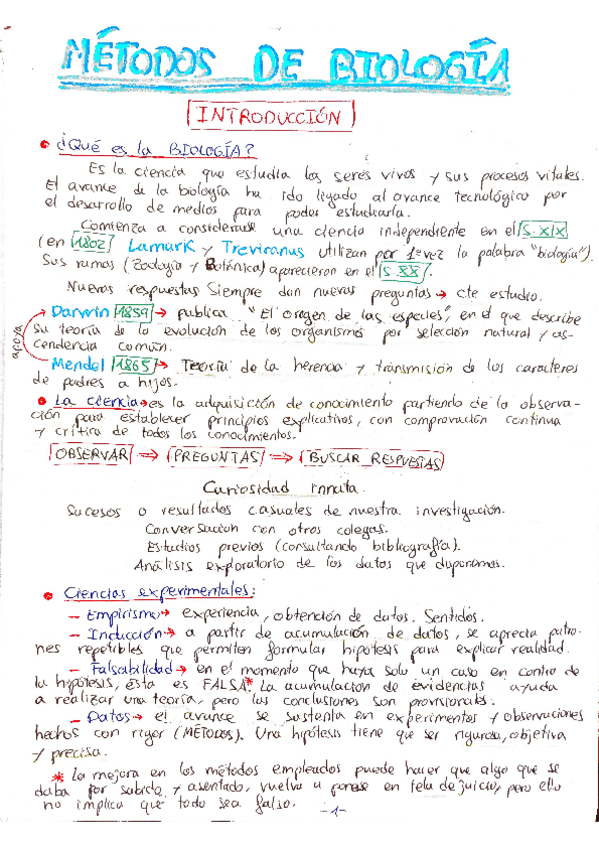 MÉTODOS DE BIOLOGÍA
INTRODUCCIÓN
• ¿Qué es la BIOLOGÍA?
Es la ciencia que estudia los seres vivos y sus procesos vitales.
El avance de la biología ha ido ligado al avance tecnológico por
el desarrollo de medios para poder estudiarla.
Comienza a considerarse una ciencia independiente en el S. XIX
(en 1802 Lamark y Treviranus utilizan por 1ª vez la palabra "biología").
Sus ramas (Zoología y Botánica) aparecieron en el S. XX.
Nuevas respuestas siempre dan nuevas preguntas → cte estudio.
Darwin 1859 → publica "El origen de las especies", en el que describe
su teoría de la evolución de los organismos por selección natural y as-
cendencia común.
apoya
Mendel 1865 → Teoría de la herencia y transmisión de los caracteres
de padres a hijos.
• La ciencia → es la adquisición de conocimiento partiendo de la observa-
ción para establecer principios explicativos, con comprovación continua
y crítica de todos los conocimientos.
OBSERVAR → PREGUNTAS → BUSCAR RESPUESTAS
Curiosidad innata.
Sucesos o resultados casuales de nuestra investigación.
Conversación con otros colegas.
Estudios previos (consultando bibliografía).
Análisis exploratorio de los datos que disponemos.
• Ciencias experimentales:
- Empirismo → experiencia, obtención de datos. Sentidos.
- Inducción → a partir de acumulación de datos, se aprecia patro-
nes repetibles que permiten formular hipótesis para explicar realidad.
- Falsabilidad → en el momento que haya solo un caso en contra de
la hipótesis, ésta es FALSA.* La acumulación de evidencias ayuda
a realizar una teoría, pero las conclusiones son provisionales.
- Datos → el avance se sustenta en experimentos y observaciones
hechos con rigor (MÉTODOS). Una hipótesis tiene que ser rigurosa, objetiva
y precisa.
* La mejora en los métodos empleados puede hacer que algo que se
daba por sabido y asentado, vuelva a ponerse en tela de juicio, pero ello
no implica que todo sea falso.
-1-